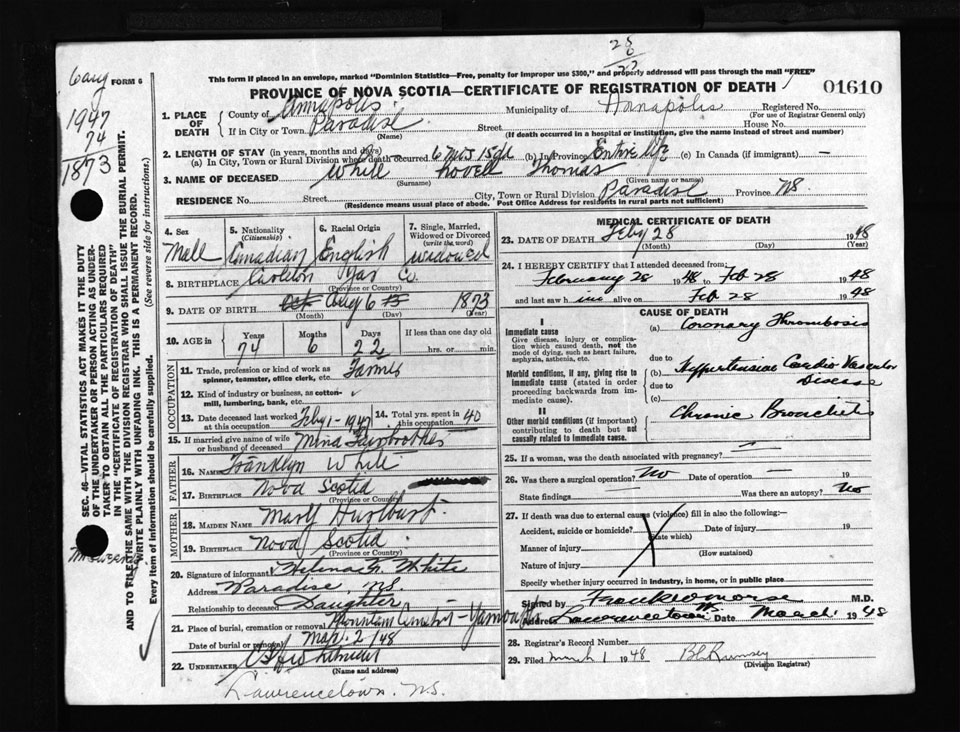 28
This form if placed in an envelope, marked "Dominion Statistics—Free, penalty for improper use $300," and properly addressed will pass through the mail "FREE"
FORM 6
PROVINCE OF NOVA SCOTIA—CERTIFICATE OF REGISTRATION OF DEATH
01610
1947
74
1873
1. PLACE OF DEATH
County of Annapolis
Municipality of Annapolis
Registered No.
(For use of Registrar General only)
If in City or Town Paradise
(Name)
Street
House No.
(If death occurred in a hospital or institution, give the name instead of street and number)
2. LENGTH OF STAY (in years, months and days)
(a) In City, Town or Rural Division where death occurred 6 mts 15 d (b) In Province Entire life (c) In Canada (if immigrant) —
3. NAME OF DECEASED White Lovell Thomas
(Surname) (Given name or names)
RESIDENCE No. Street City, Town or Rural Division Paradise Province NS
(Residence means usual place of abode. Post Office Address for residents in rural parts not sufficient)
4. Sex
Male
5. Nationality (Citizenship)
Canadian
6. Racial Origin
English
7. Single, Married, Widowed or Divorced (write the word)
widowed
8. BIRTHPLACE Carleton Yar Co.
9. DATE OF BIRTH Aug 6 1873
(Month) (Day) (Year)
10. AGE in
Years Months Days If less than one day old
74 6 22 hrs. or min.
OCCUPATION
11. Trade, profession or kind of work as spinner, teamster, office clerk, etc. Farmer
12. Kind of industry or business, as cotton-mill, lumbering, bank, etc.
13. Date deceased last worked at this occupation Feby 1-1947
14. Total yrs. spent in this occupation 40
15. If married give name of wife or husband of deceased Mina
FATHER
16. Name Franklyn White
17. Birthplace Nova Scotia
(Province or Country)
MOTHER
18. Maiden Name Mary Hurlburt
19. Birthplace Nova Scotia
(Province or Country)
20. Signature of informant Helena G. White
Address Paradise, NS
Relationship to deceased Daughter
21. Place of burial, cremation or removal Mountain Cemetery - Yarmouth
Date of burial or removal Mar. 2/48
22. UNDERTAKER
(Name and address)
Lawrencetown, N.S.
MEDICAL CERTIFICATE OF DEATH
23. DATE OF DEATH Feby 28 1948
(Month) (Day) (Year)
24. I HEREBY CERTIFY that I attended deceased from:
February 28 1948 to Feb 28 1948
and last saw him alive on Feb 28 1948
CAUSE OF DEATH
I
Immediate cause
Give disease, injury or complication which caused death, not the mode of dying, such as heart failure, asphyxia, asthenia, etc.
(a) Coronary Thrombosis
due to
Morbid conditions, if any, giving rise to immediate cause (stated in order proceeding backwards from immediate cause).
(b) Hypertensive Cardio Vascular Disease
due to
(c)
II
Other morbid conditions (if important) contributing to death but not causally related to immediate cause.
Chronic Bronchitis
25. If a woman, was the death associated with pregnancy? —
26. Was there a surgical operation? No Date of operation — 19
State findings Was there an autopsy? No
27. If death was due to external causes (violence) fill in also the following:—
Accident, suicide or homicide? Date of injury 19
(State which)
Manner of injury
(How sustained)
Nature of injury
Specify whether injury occurred in industry, in home, or in public place
Signed by Frank Morse M.D.
Address Lawrencetown NS. Date March 1 1948
28. Registrar's Record Number
29. Filed March 1 1948
(Division Registrar)
SEC. 46—VITAL STATISTICS ACT MAKES IT THE DUTY OF THE UNDERTAKER OR PERSON ACTING AS UNDERTAKER TO OBTAIN ALL THE PARTICULARS REQUIRED IN THE "CERTIFICATE OF REGISTRATION OF DEATH" AND TO FILE THE SAME WITH THE DIVISION REGISTRAR WHO SHALL ISSUE THE BURIAL PERMIT.
WRITE PLAINLY WITH UNFADING INK. THIS IS A PERMANENT RECORD.
Every item of information should be carefully supplied. (See reverse side for instructions.)